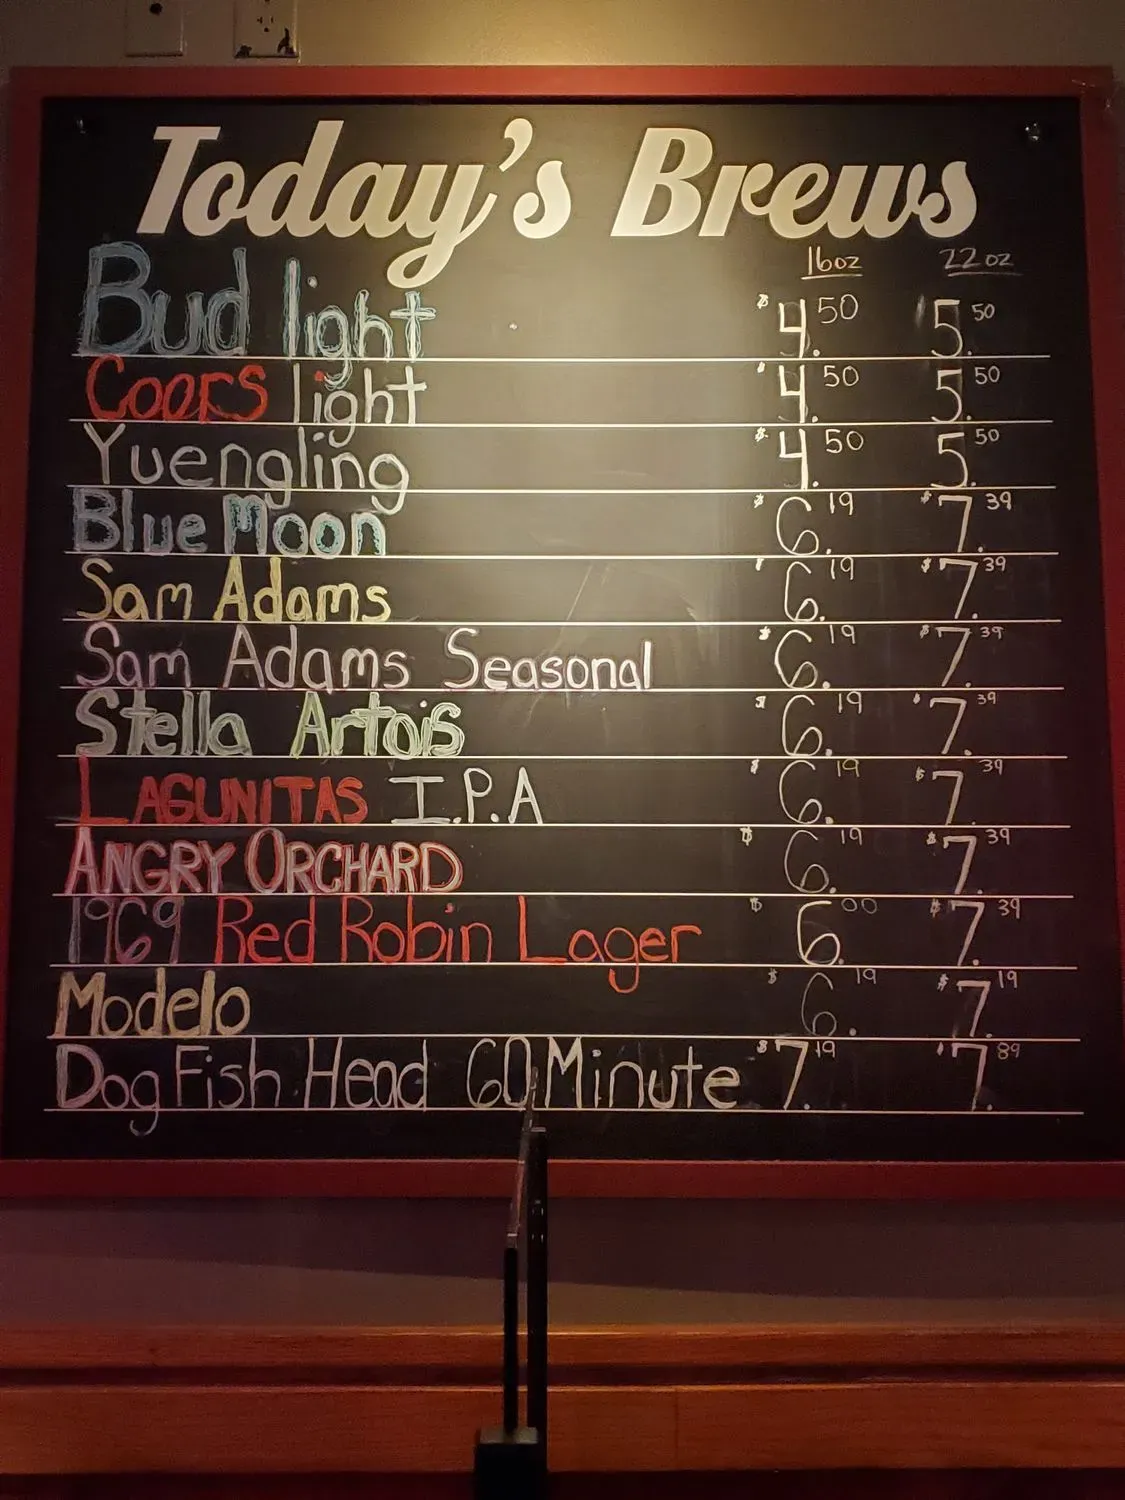 Today's Brews
16oz 22oz
Bud light $4.50 5.50
Coors light $4.50 5.50
Yuengling $4.50 5.50
Blue Moon $6.19 $7.39
Sam Adams $6.19 $7.39
Sam Adams Seasonal $6.19 $7.39
Stella Artois $6.19 $7.39
LAGUNITAS I.P.A $6.19 $7.39
ANGRY ORCHARD $6.19 $7.39
1969 Red Robin Lager $6.00 $7.39
Modelo $6.19 $7.19
Dog Fish Head 60 Minute $7.19 $7.89